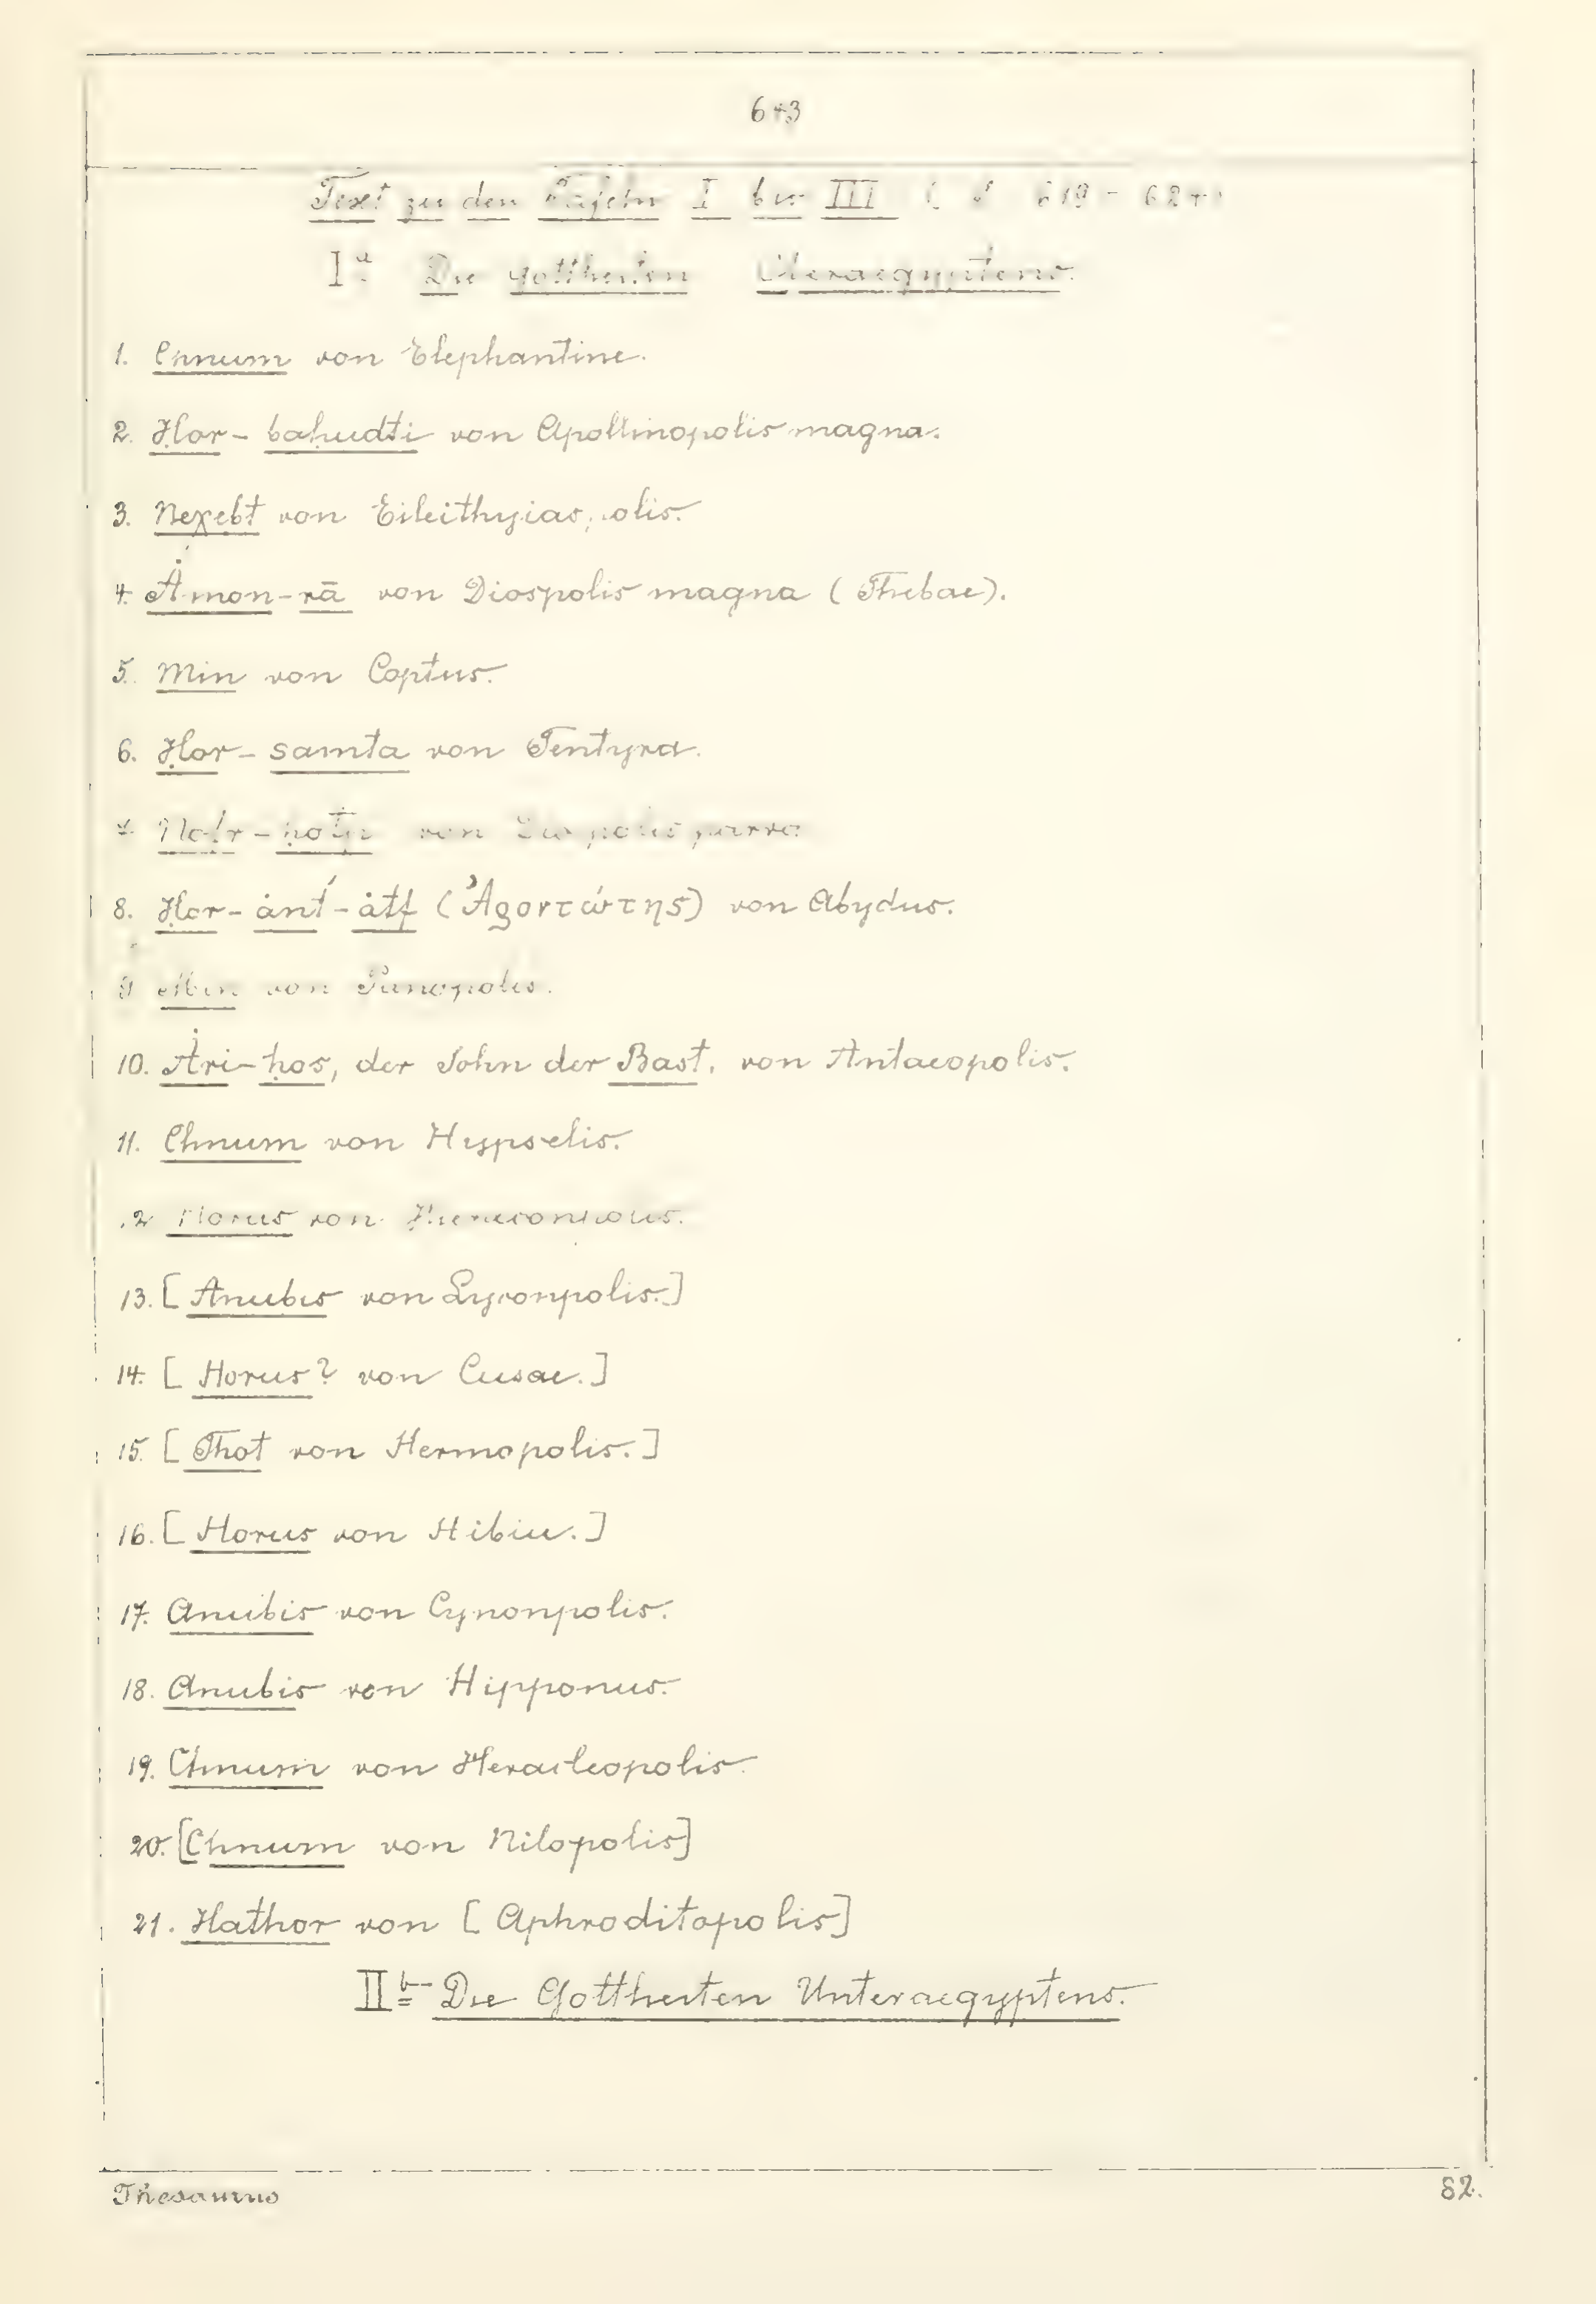 643
Text zu den Tafeln I bis III ( S 619 - 624)
Iª Die Gottheiten Oberaegyptens.
1. Chnum von Elephantine.
2. Ḥor-baḥudti von Apollinopolis magna.
3. Neχebt von Eileithyiaspolis.
4. Ȧmon-rā von Diospolis magna (Thebae).
5. Min von Coptus.
6. Ḥor-samta von Tentyra.
7. Nofr-ḥotp von Diospolis parva
8. Ḥor-ȧnt́-ȧtf (Ἁροντώτης) von Abydus.
9 Min von Panopolis.
10. Ȧri-ḥos, der Sohn der Bast, von Antaeopolis.
11. Chnum von Hypselis.
12 Horus von Hieraconpolis.
13. [Anubis von Lyconpolis.]
14. [Horus? von Cusae.]
15. [Thot von Hermopolis.]
16. [Horus von Hibiu.]
17. Anubis von Cynonpolis.
18. Anubis von Hipponus.
19. Chnum von Heracleopolis.
20. [Chnum von Nilopolis]
21. Hathor von [Aphroditopolis]
IIᵇ Die Gottheiten Unteraegyptens.
Thesaurus 82.